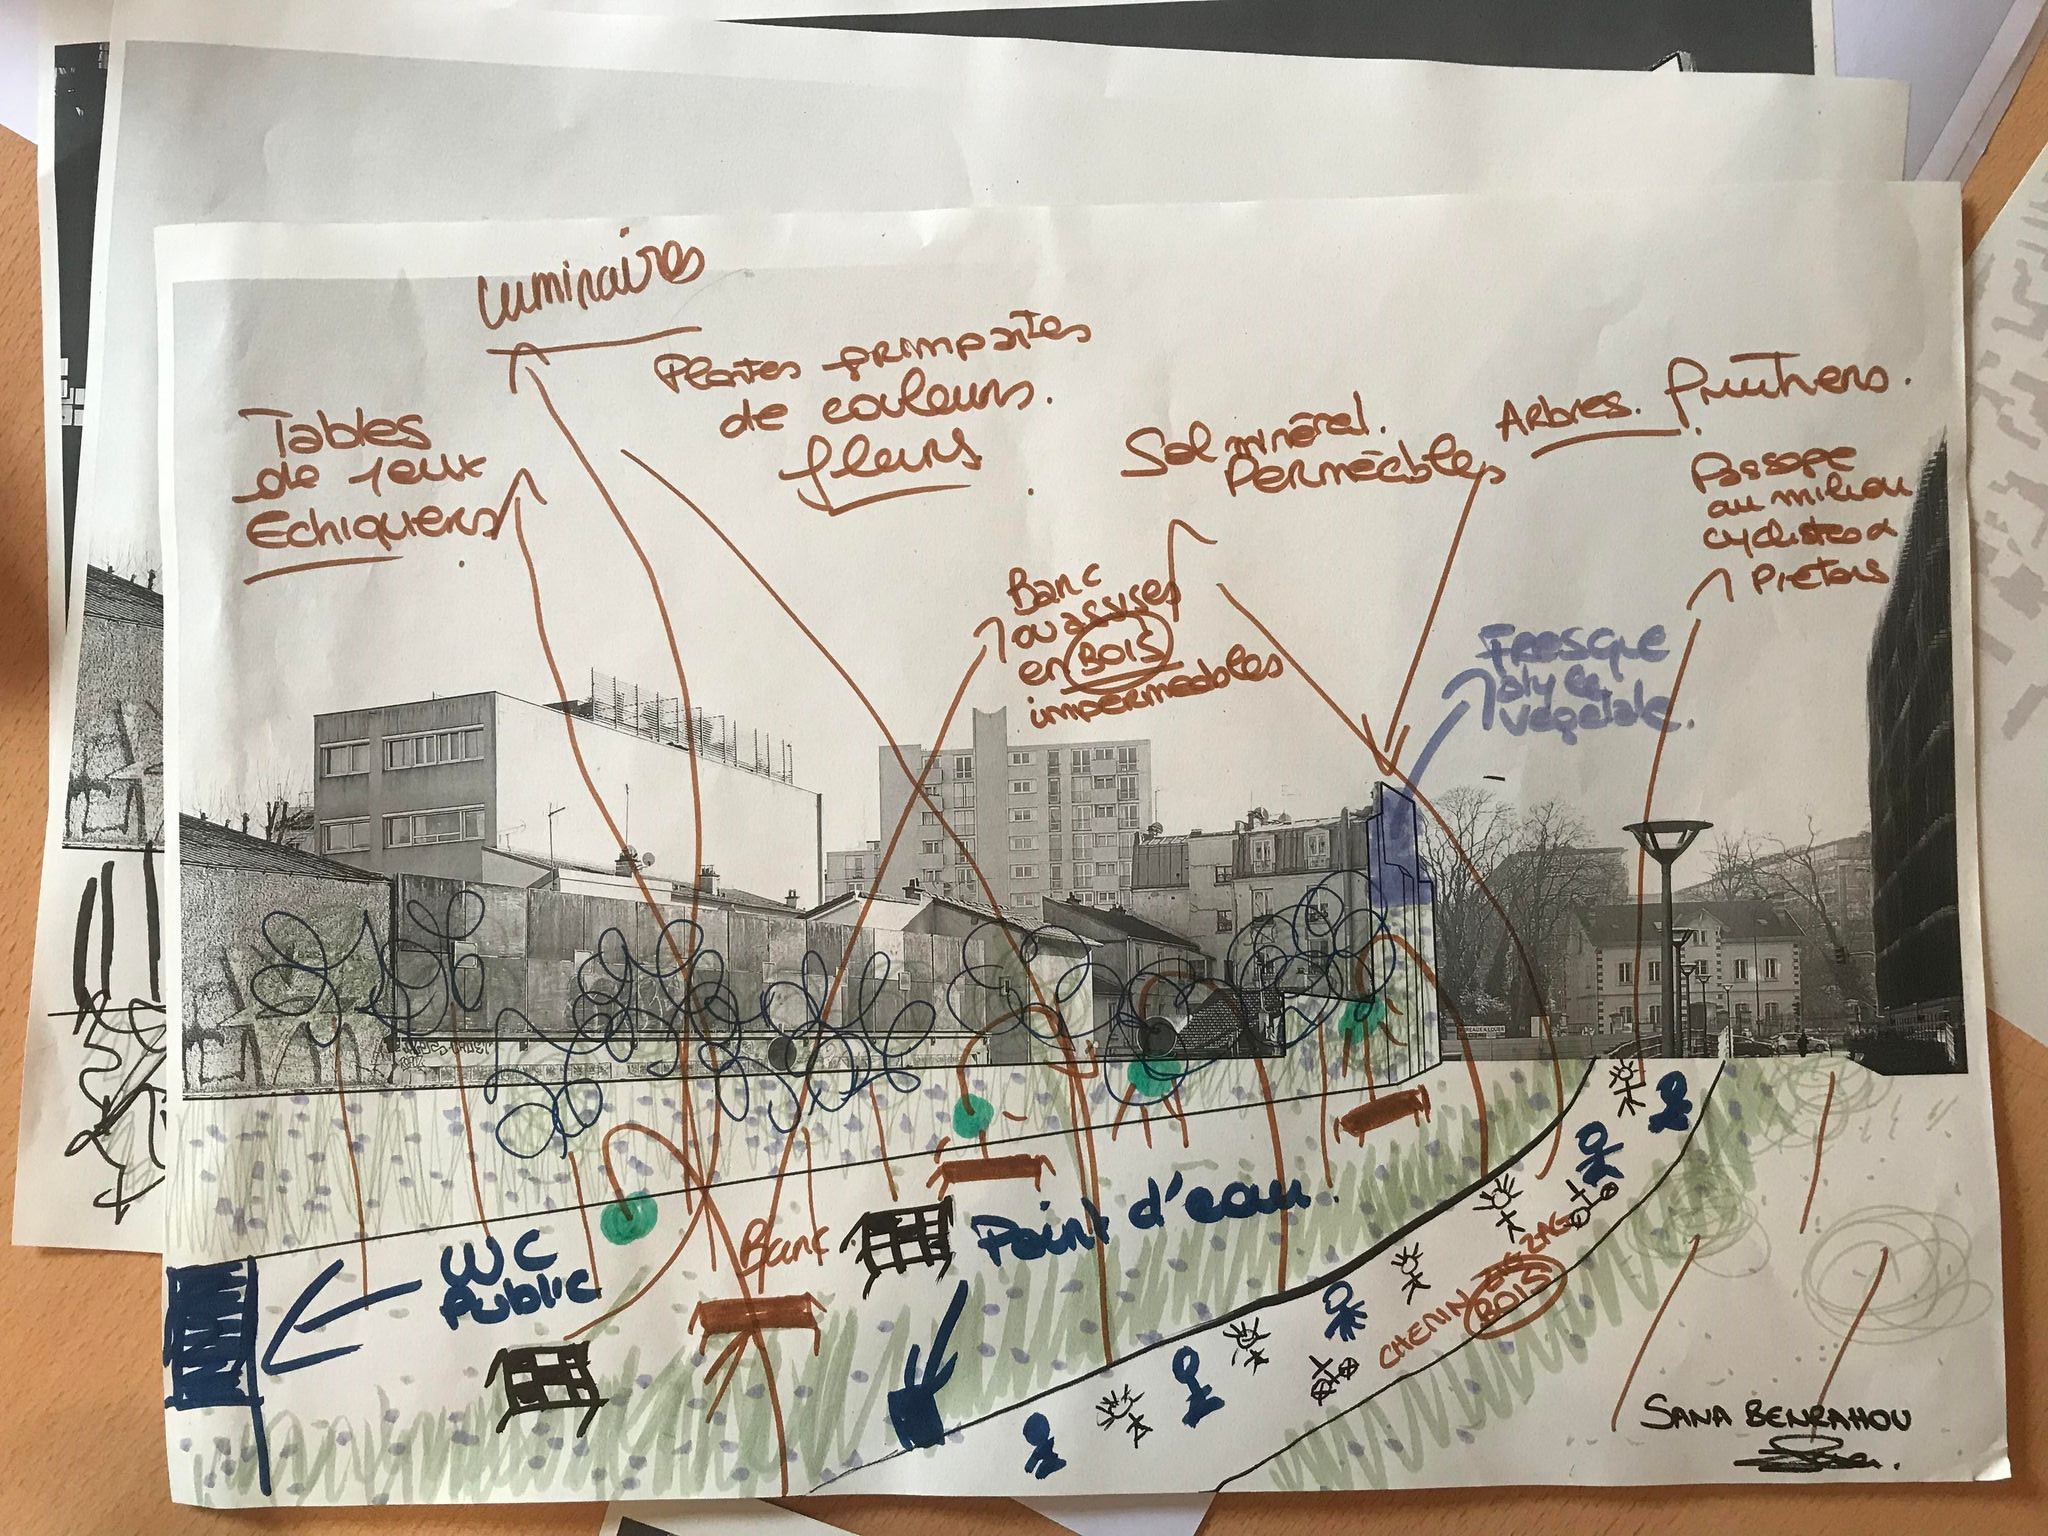 Luminaires
Plantes grimpantes
de couleurs.
fleurs
Tables
de jeux
Echiquiers
Sol minéral.
Perméables
Arbres. fruitiers.
Passage
au milieu
cyclistes &
Piétons
Banc
ou assises
en BOIS
imperméables
Fresque
végétale.
WC
Public
Banc
Point d'eau.
CHEMIN
BOIS
SANA BENRAHOU